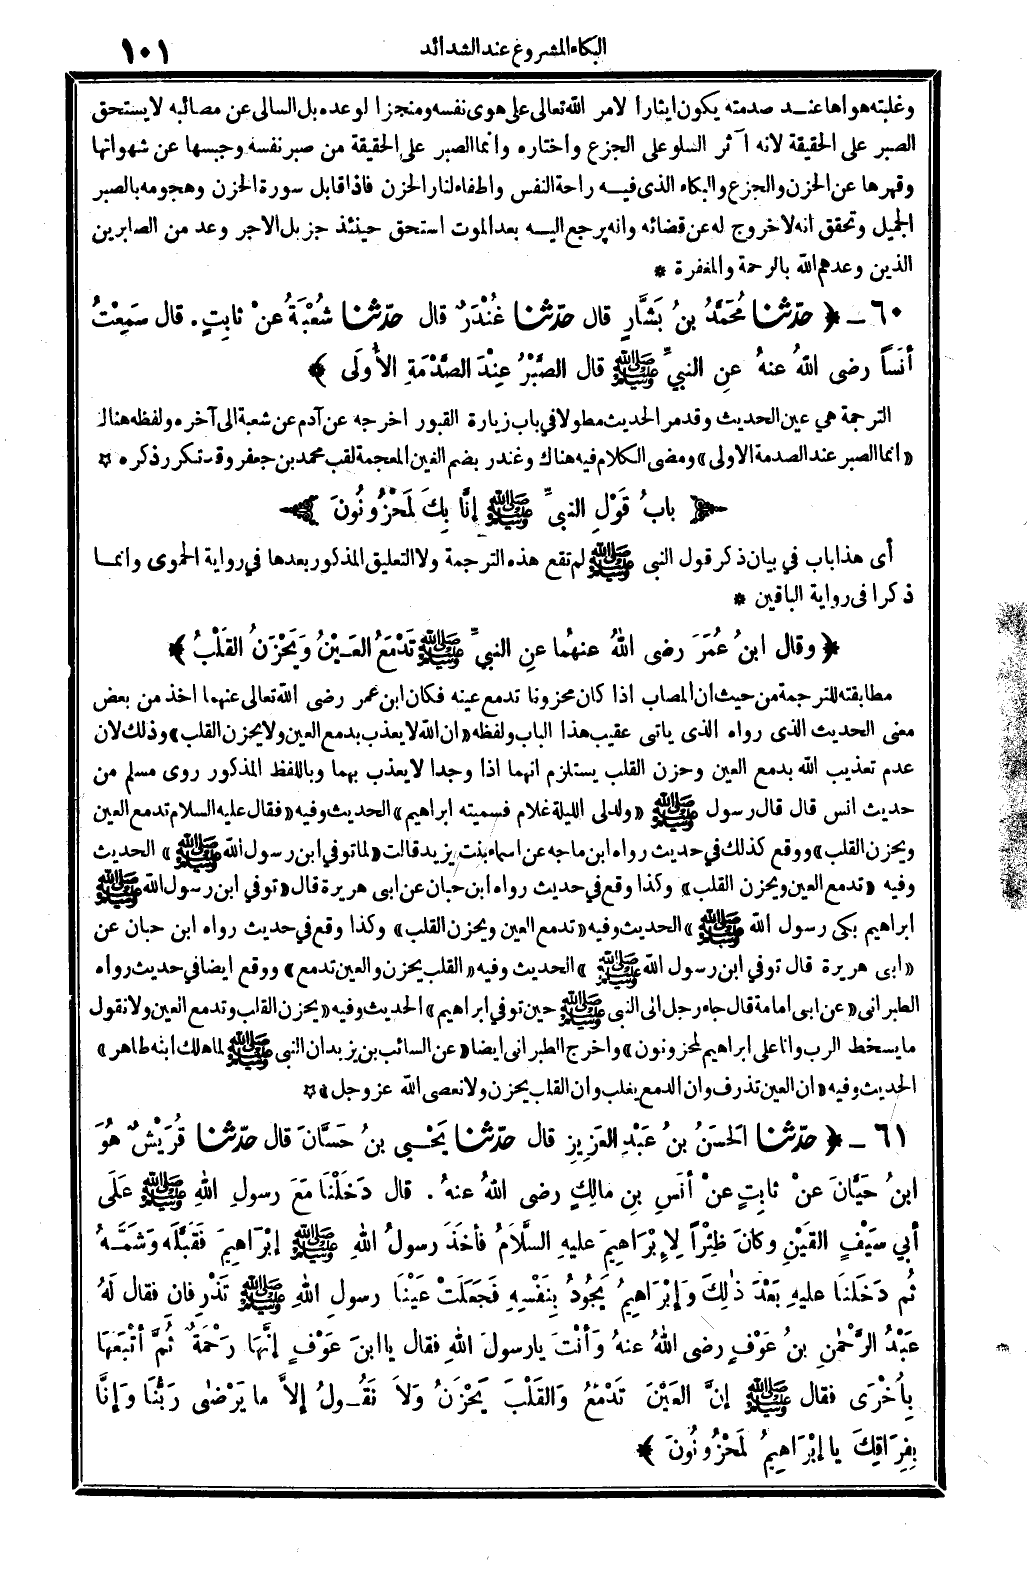 البكاء المشروع عند الشدائد ١٠١
وغلبته هواها عند صدمته يكون ايثارا لامر الله تعالى على هوى نفسه ومنجزا لوعده بل السالى عن مصائبه لا يستحق
الصبر على الحقيقة لانه آثر السلو على الجزع واختاره وانما الصبر على الحقيقة من صبر نفسه وحبسها عن شهواتها
وقهرها عن الحزن والجزع والبكاء الذى فيه راحة النفس واطفاء لنار الحزن فاذا قابل سورة الحزن وهجومه بالصبر
الجميل وتحقق انه لا خروج له عن قضائه وانه يرجع اليه بعد الموت استحق حينئذ جزيل الاجر وعد من الصابرين
الذين وعدهم الله بالرحمة والمغفرة *
٦٠ - ﴿ حدّثنا مُحَمَّدُ بنُ بَشَّارٍ قال حدّثنا غُنْدَرٌ قال حدّثنا شُعْبَةُ عنْ ثابِتٍ. قال سَمِعْتُ
أنَساً رضى اللهُ عنهُ عنِ النبيِّ ﷺ قال الصَّبْرُ عِنْدَ الصَّدْمَةِ الأُولَى ﴾
الترجمة هي عين الحديث وقد مر الحديث مطولا في باب زيارة القبور اخرجه عن آدم عن شعبة الى آخره ولفظه هناك
«انما الصبر عند الصدمة الاولى» ومضى الكلام فيه هناك وغندر بضم الغين المعجمة لقب محمد بن جعفر وقد تكرر ذكره ¤
﴿ بابُ قَوْلِ النبيِّ ﷺ إنَّا بِكَ لَمَحْزُونُونَ ﴾
أى هذا باب في بيان ذكر قول النبى ﷺ لم تقع هذه الترجمة ولا التعليق المذكور بعدها في رواية الحموى وانما
ذكرا فى رواية الباقين *
﴿ وقال ابنُ عُمَرَ رضى اللهُ عنهُما عنِ النبيِّ ﷺ تَدْمَعُ العَيْنُ وَيَحْزَنُ القَلْبُ ﴾
مطابقته للترجمة من حيث ان المصاب اذا كان محزونا تدمع عينه فكان ابن عمر رضى الله تعالى عنهما اخذ من بعض
معنى الحديث الذى رواه الذى ياتى عقيب هذا الباب ولفظه «ان الله لا يعذب بدمع العين ولا يحزن القلب» وذلك لان
عدم تعذيب الله بدمع العين وحزن القلب يستلزم انهما اذا وجدا لا يعذب بهما وباللفظ المذكور روى مسلم من
حديث انس قال قال رسول ﷺ «ولد لى الليلة غلام فسميته ابراهيم» الحديث وفيه «فقال عليه السلام تدمع العين
ويحزن القلب» ووقع كذلك في حديث رواه ابن ماجه عن اسماء بنت يزيد قالت «لما توفي ابن رسول الله ﷺ» الحديث
وفيه «تدمع العين ويحزن القلب» وكذا وقع في حديث رواه ابن حبان عن ابى هريرة قال «توفي ابن رسول الله ﷺ
ابراهيم بكى رسول الله ﷺ» الحديث وفيه «تدمع العين ويحزن القلب» وكذا وقع في حديث رواه ابن حبان عن
«ابى هريرة قال توفي ابن رسول الله ﷺ» الحديث وفيه «القلب يحزن والعين تدمع» ووقع ايضا في حديث رواه
الطبرانى «عن ابى امامة قال جاء رجل الى النبى ﷺ حين توفي ابراهيم» الحديث وفيه «يحزن القلب وتدمع العين ولا نقول
ما يسخط الرب وانا على ابراهيم لمحزونون» واخرج الطبرانى ايضا «عن السائب بن يزيد ان النبى ﷺ لما هلك ابنه طاهر»
الحديث وفيه «ان العين تذرف وان الدمع يغلب وان القلب يحزن ولا نعصى الله عز وجل» ¤
٦١ - ﴿ حدّثنا الحَسَنُ بنُ عَبْدِ العَزِيزِ قال حدّثنا يَحْيَى بنُ حَسَّانَ قال حدّثنا قُرَيْشٌ هُوَ
ابنُ حَيَّانَ عنْ ثابِتٍ عنْ أنَسِ بنِ مالِكٍ رضى اللهُ عنهُ. قال دَخَلْنَا مَعَ رسولِ اللهِ ﷺ عَلَى
أبي سَيْفٍ القَيْنِ وكانَ ظِئْراً لِإبْرَاهِيمَ عليهِ السَّلاَمُ فأخَذَ رسولُ اللهِ ﷺ إبْرَاهِيمَ فَقَبَّلَه وَشَمَّهُ
ثُم دَخَلْنا عليهِ بَعْدَ ذٰلِكَ وَإبْرَاهِيمُ يَجُودُ بِنَفْسِهِ فَجَعَلَتْ عَيْنَا رسولِ اللهِ ﷺ تَذْرِفانِ فقال لَهُ
عَبْدُ الرَّحْمٰنِ بنُ عَوْفٍ رضى اللهُ عنهُ وَأنْتَ يارسولَ اللهِ فقال ياابنَ عَوْفٍ إنَّهَا رَحْمَةٌ ثُمَّ أتْبَعَهَا
بِأُخْرَى فقال ﷺ إنَّ العَيْنَ تَدْمَعُ وَالقَلْبَ يَحْزَنُ وَلاَ نَقُولُ إلاَّ ما يَرْضٰى رَبُّنَا وَإنَّا
بِفِرَاقِكَ ياإبْرَاهِيمُ لَمَحْزُونُونَ ﴾